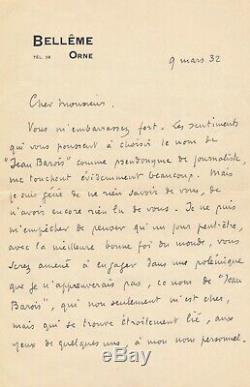 BELLÊME
TÉL. 28 ORNE
9 mars 32
Cher Monsieur,
Vous m'embarrassez fort. Les sentiments
qui vous poussent à choisir le nom de
"Jean Barois" comme pseudonyme de journaliste,
me touchent évidemment beaucoup. Mais
je suis gêné de ne rien savoir de vous, de
n'avoir encore rien lu de vous. Je ne puis
m'empêcher de penser qu'un jour peut-être,
avec la meilleure bonne foi du monde, vous
serez amené à engager dans une polémique
que je n'approuverais pas, ce nom de "Jean
Barois", qui non seulement m'est cher,
mais qui se trouve étroitement lié, aux
yeux de quelques uns, à mon nom personnel.